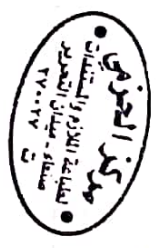 مركز الحزمي
لطباعة الملازم والمستندات
صنعاء - ميدان التحرير
ت ٢٧٠٠٢٧